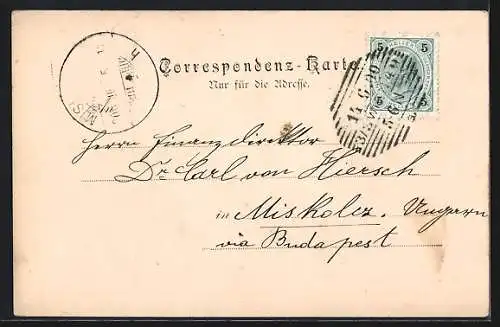 Correspondenz-Karte
Nur für die Adresse.
5 5
5 5
14.6.00
Herrn Finanzdirektor
Dr Carl von Hiersch
in Miskolcz, Ungarn
via Budapest